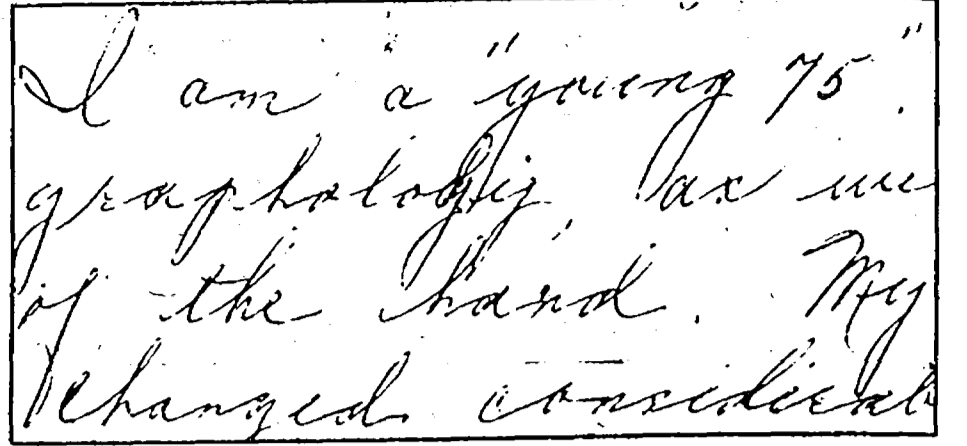 I am a "young 75".
graphology, as we
of the hand. My
changed considerab